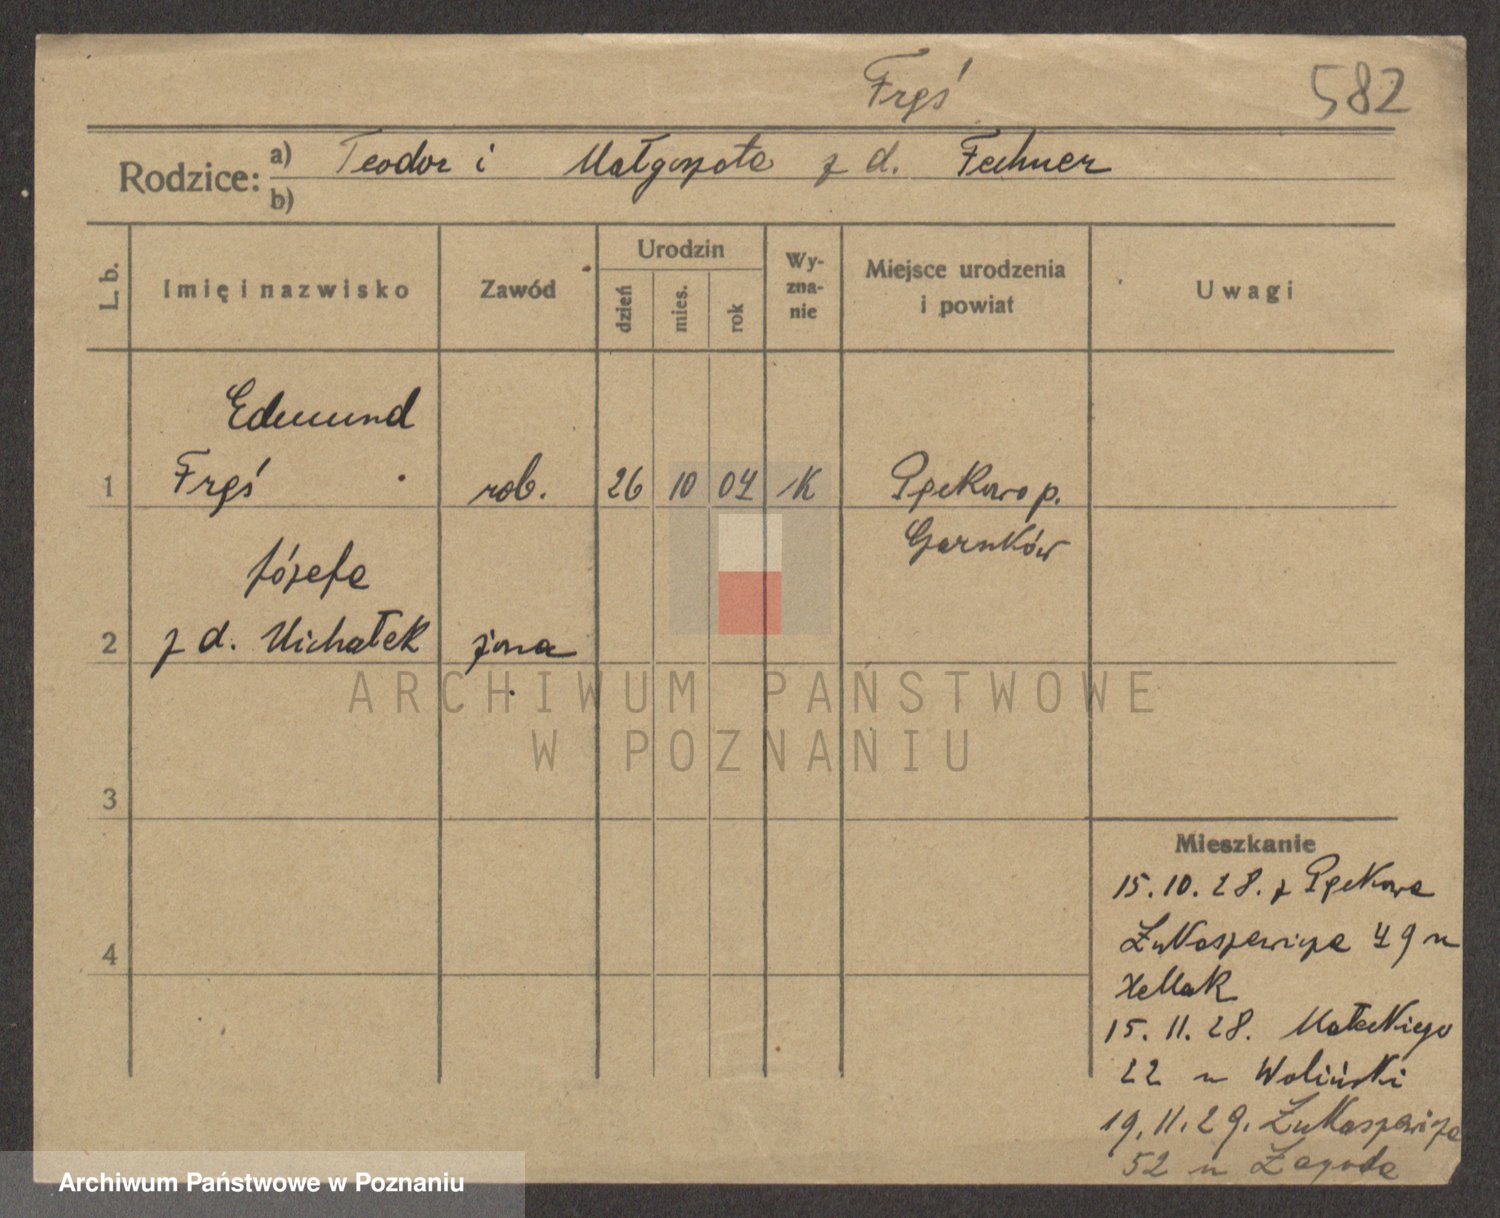 Fręś 582
Rodzice: a) Teodor i Małgorzata z d. Fechner
b)
L. b. Imię i nazwisko Zawód Urodzin dzień mies. rok Wyznanie Miejsce urodzenia i powiat Uwagi
Edmund
1 Fręś rob. 26 10 04 K Pęckowo p.
Czarnków
Józefa
2 z d. Michałek żona
3
4
Mieszkanie
15.10.28. z Pęckowa
Łukaszewicza 49 u
15.11.28. Małeckiego
22 u Woliński
19.11.29. Łukaszewicza
52 u Łagoda
ARCHIWUM PAŃSTWOWE
W POZNANIU
Archiwum Państwowe w Poznaniu